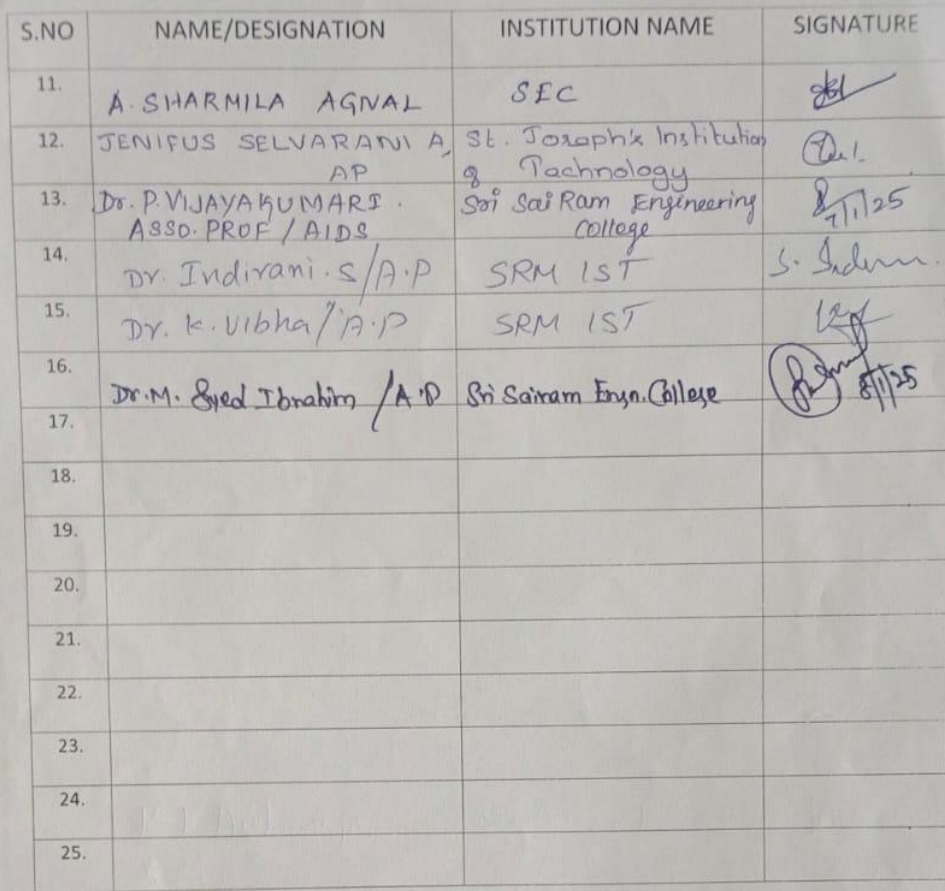 S.NO NAME/DESIGNATION INSTITUTION NAME SIGNATURE
11. A. SHARMILA AGNAL SEC
12. JENIFUS SELVARANI A, St. Joseph's Institution
AP & Technology
13. Dr. P. VIJAYAKUMARI. Sri Sai Ram Engineering 7/1/25
ASSO. PROF / AIDS College
14. Dr. Indirani. S/A.P SRM IST S.
15. Dr. K. Vibha/A.P SRM IST
16. Dr. M. Syed Ibrahim /A.P Sri Sairam Engn. College 8/1/25
17.
18.
19.
20.
21.
22.
23.
24.
25.